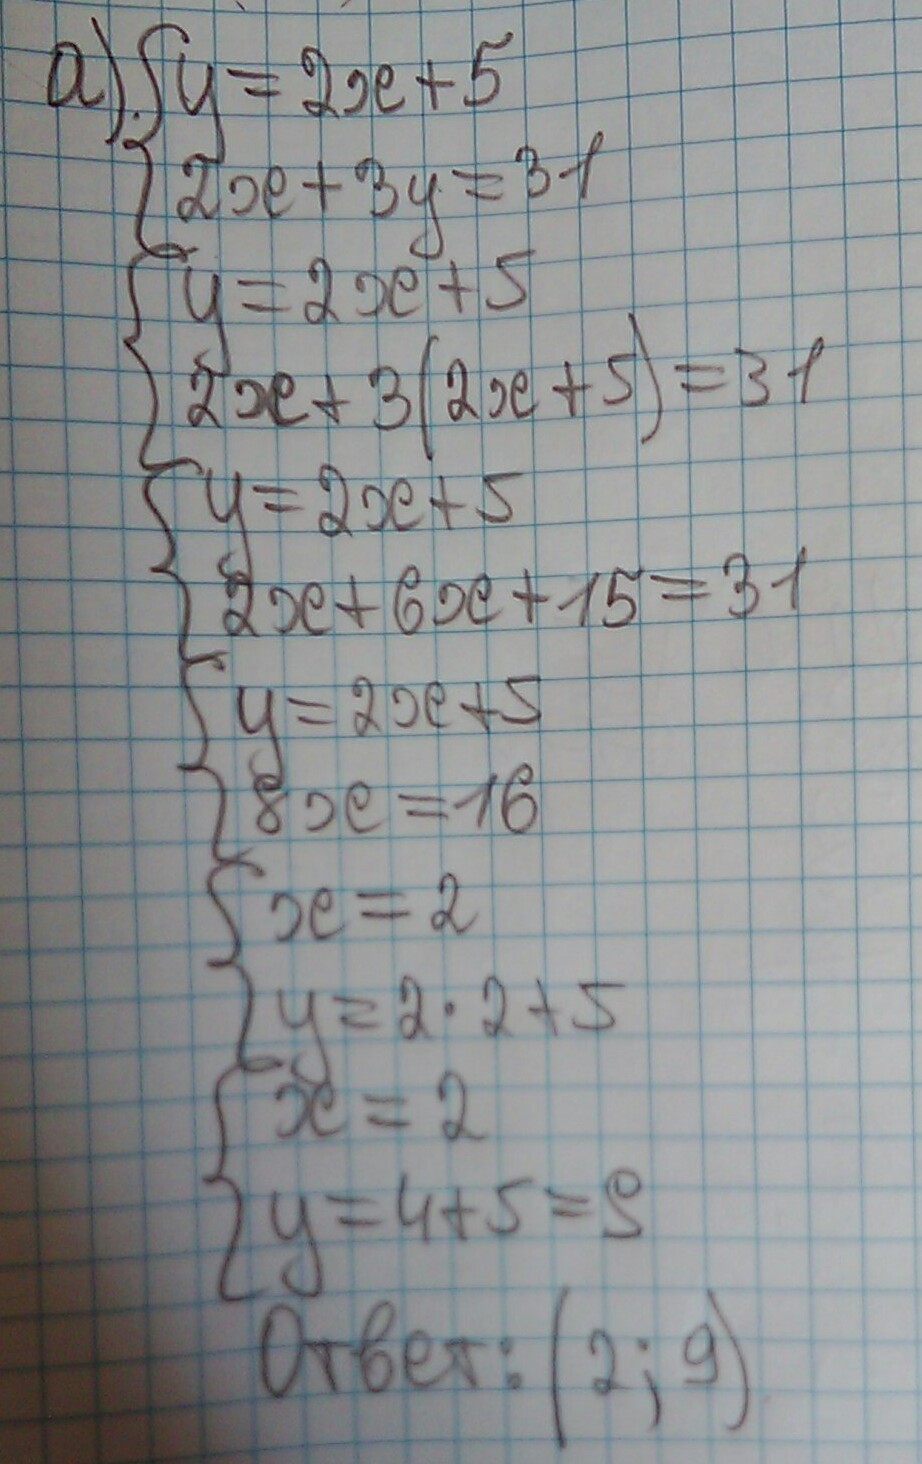 а) { y = 2x + 5
2x + 3y = 31
{ y = 2x + 5
2x + 3(2x + 5) = 31
{ y = 2x + 5
2x + 6x + 15 = 31
{ y = 2x + 5
8x = 16
{ x = 2
y = 2 · 2 + 5
{ x = 2
y = 4 + 5 = 9
Ответ: (2; 9)